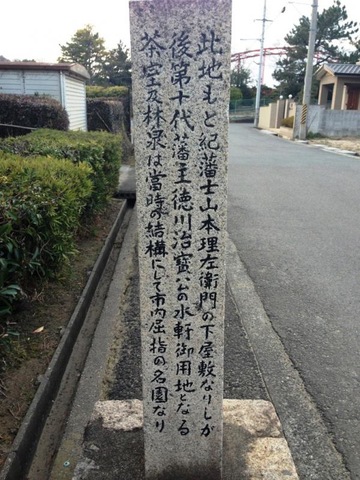 此地もと紀藩士山本理左衛門の下屋敷なりしが
後第十代藩主徳川治寳公の水軒御用地となる
茶室及林泉は當時の結構にして市内屈指の名園なり